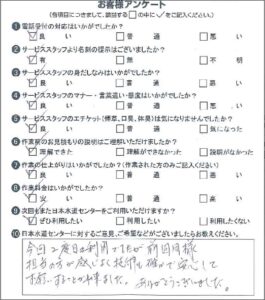 お客様アンケート
(各項目につきまして、該当する□の中に✓をご記入ください。)
① 電話受付の対応はいかがでしたか?
☑良い □普通 □悪い
② サービススタッフより名刺の提示はございましたか?
☑有 □無 □不明
③ サービススタッフの身だしなみはいかがでしたか?
☑良い □普通 □悪い
④ サービススタッフのマナー・言葉遣い・態度はいかがでしたか?
☑良い □普通 □悪い
⑤ サービススタッフのエチケット(煙草、口臭、体臭)は気になりませんでしたか?
☑良い □普通 □気になった
⑥ 作業前のお見積もりの説明はご理解いただけましたか?
☑理解できた □理解ができなかった □説明がなかった
⑦ 作業の仕上がりはいかがでしたか?(作業された方のみご記入ください)
☑良い □普通 □悪い
⑧ 作業料金はいかがでしたか?
☑安い □普通 □高い
⑨ 次回もまた日本水道センターをご利用いただけますか?
☑ぜひ利用したい □利用したい □利用したくない
⑩ 日本水道センターに対するご意見、ご希望などがございましたらお教えください。
今回2度目の利用でしたが前回同様
担当の方が感じよく技術も確かで安心して
お願いすることが出来ました。ありがとうございました。